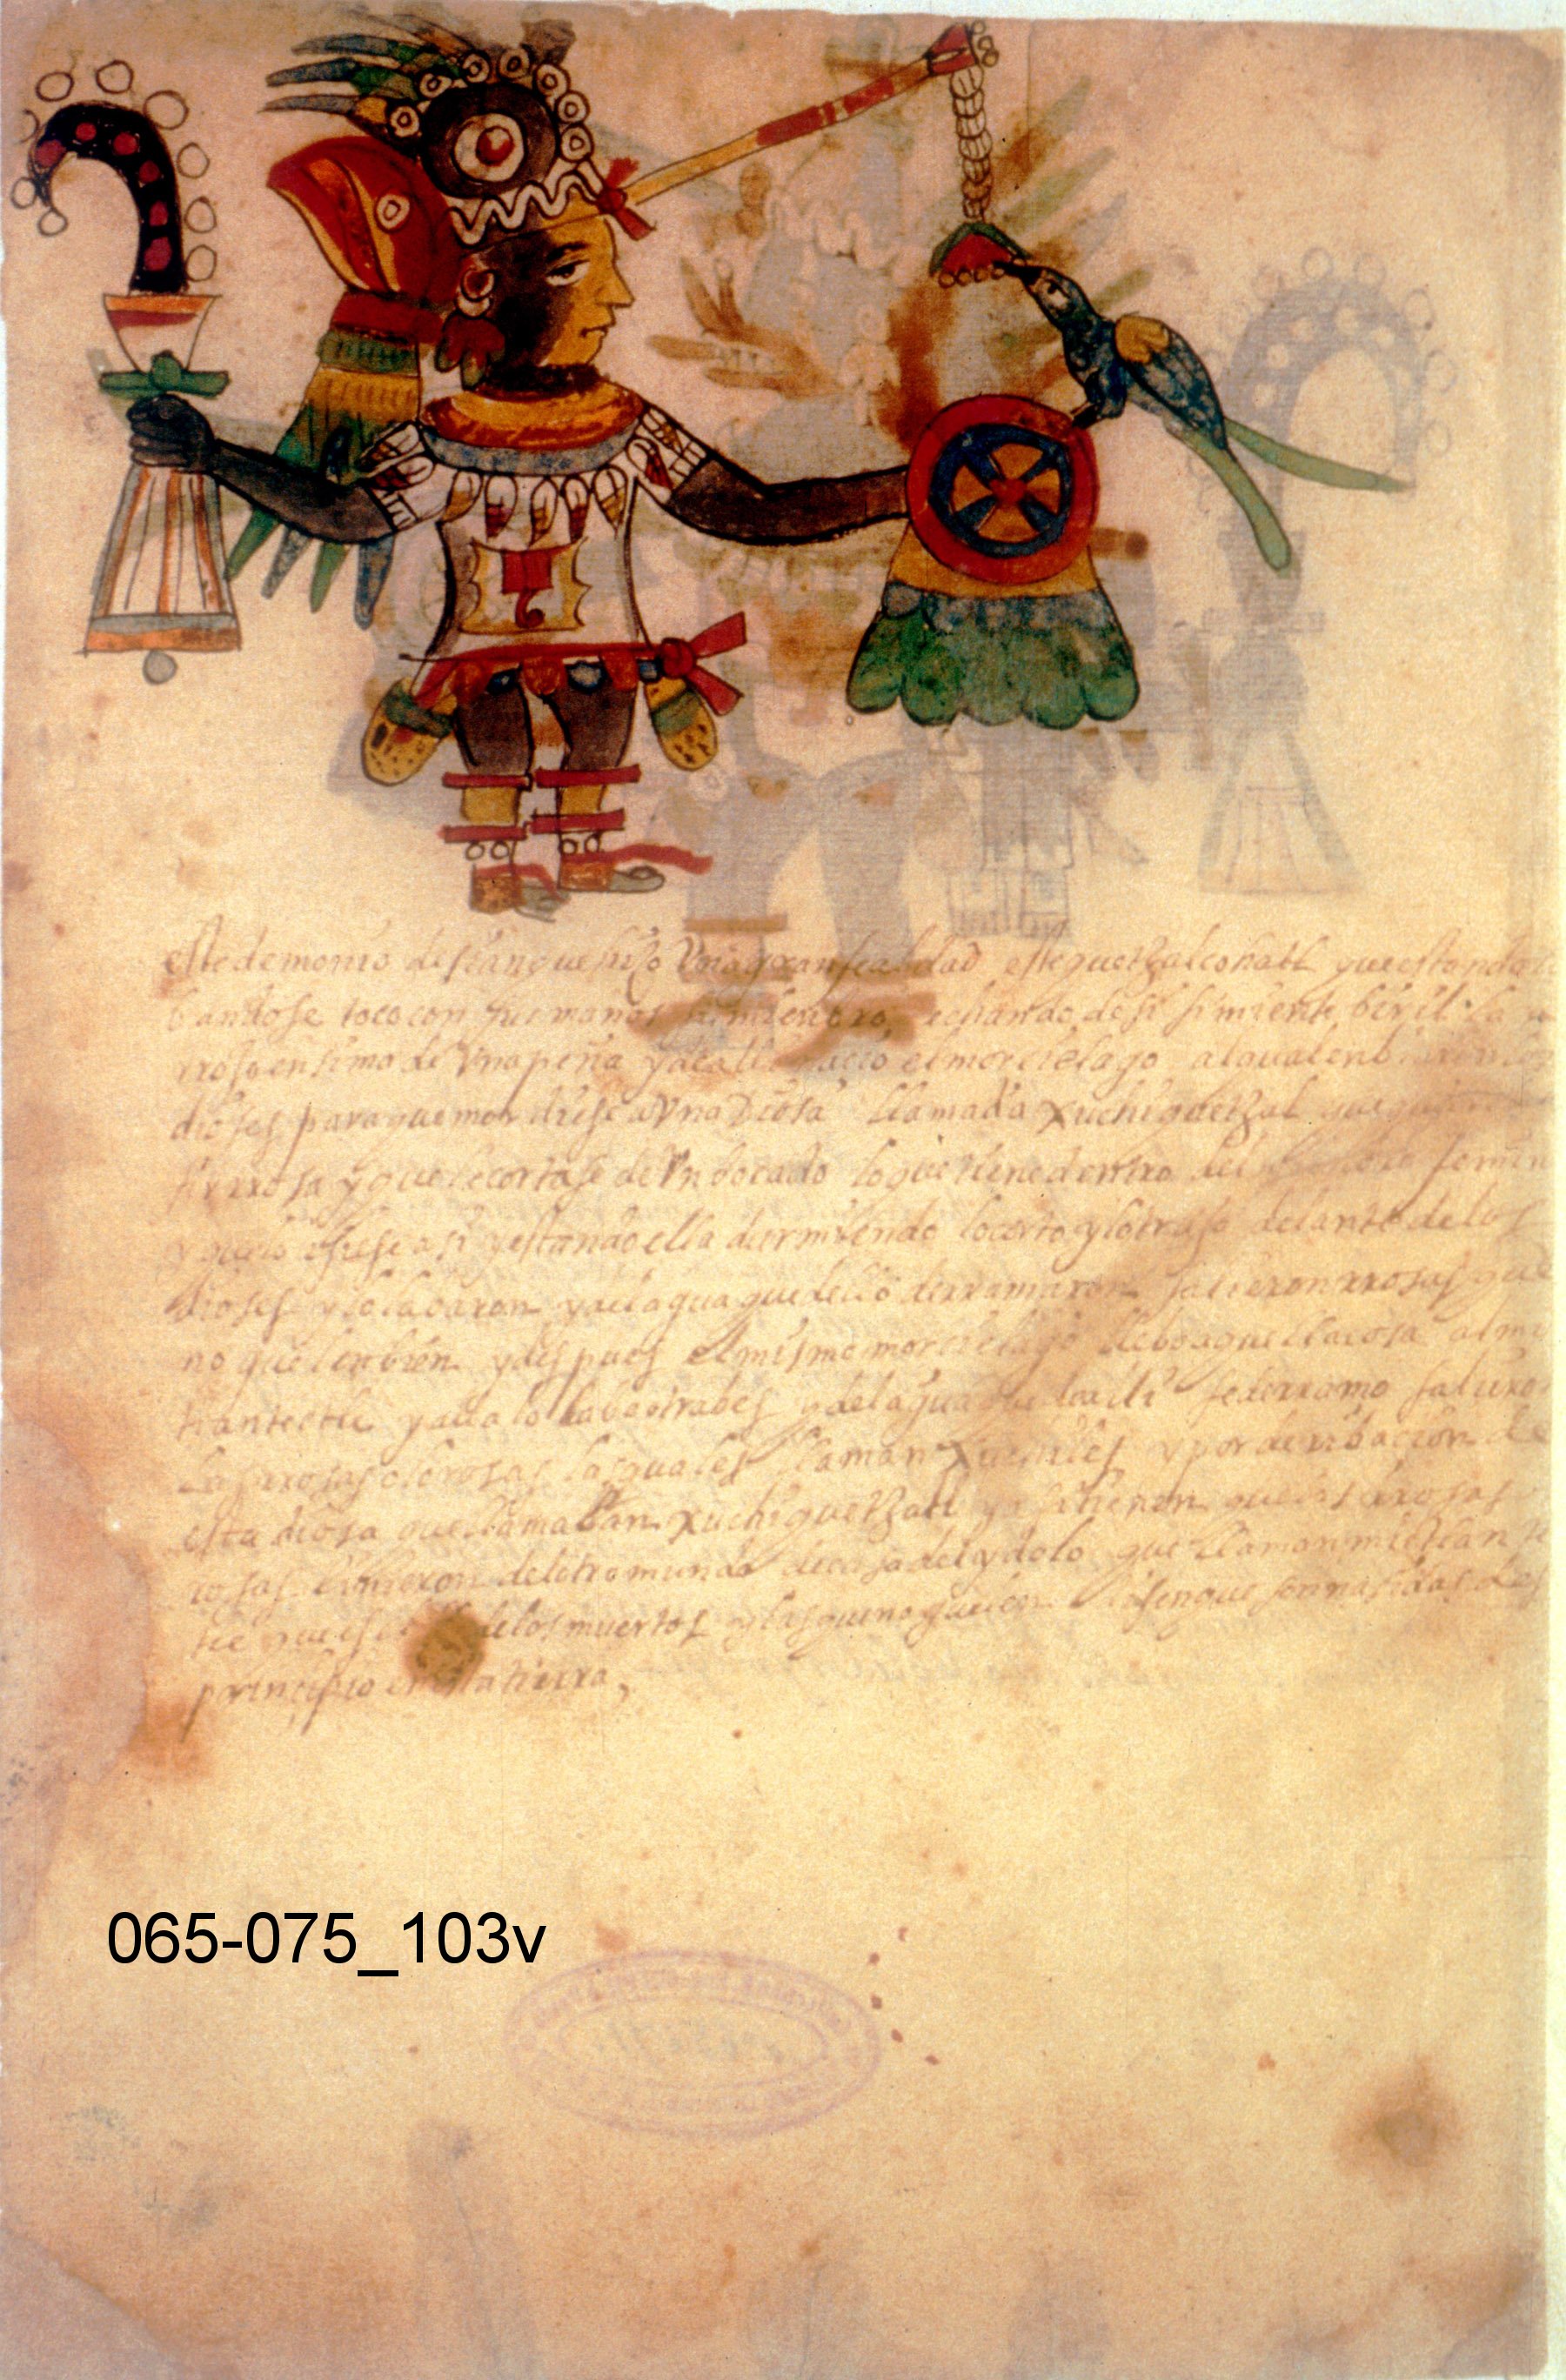 este demonio de qui an que hizo Una gran fealdad este quetzalcohatl que estando la
bandose toco con sus manos su miembro echando de si simiente biril la
rroso ensima de Una peña y de alli nacio el morcielago al qual enbiaron los
dioses para que mordiese a Una diosa llamada xuchiquetzal que quiere
rrosa y que le cortase de Un bocado lo que tiene dentro del miembro femin
y estando ella durmiendo lo corto y lo traso delante de los
dioses y lo labaron y del agua que dello derramaron salieron rrosas que
no guelen bien y despues el mismo morcielago llebo aquella rosa al mi
tlantectli y alla lo labo otra bez y del agua que de alli se derramo saliero
las rrosas olorosas las quales llaman xuchiles y por deribacion de
esta diosa que llamaban xuchiquetzatl y asi tienen que las rrosas
rosas binieron del otro mundo de casa del ydolo que llaman mictlan te
tle que es de los muertos y las que no guelen disen que son nasidas des
prinsipio en la tierra,
065-075_103v